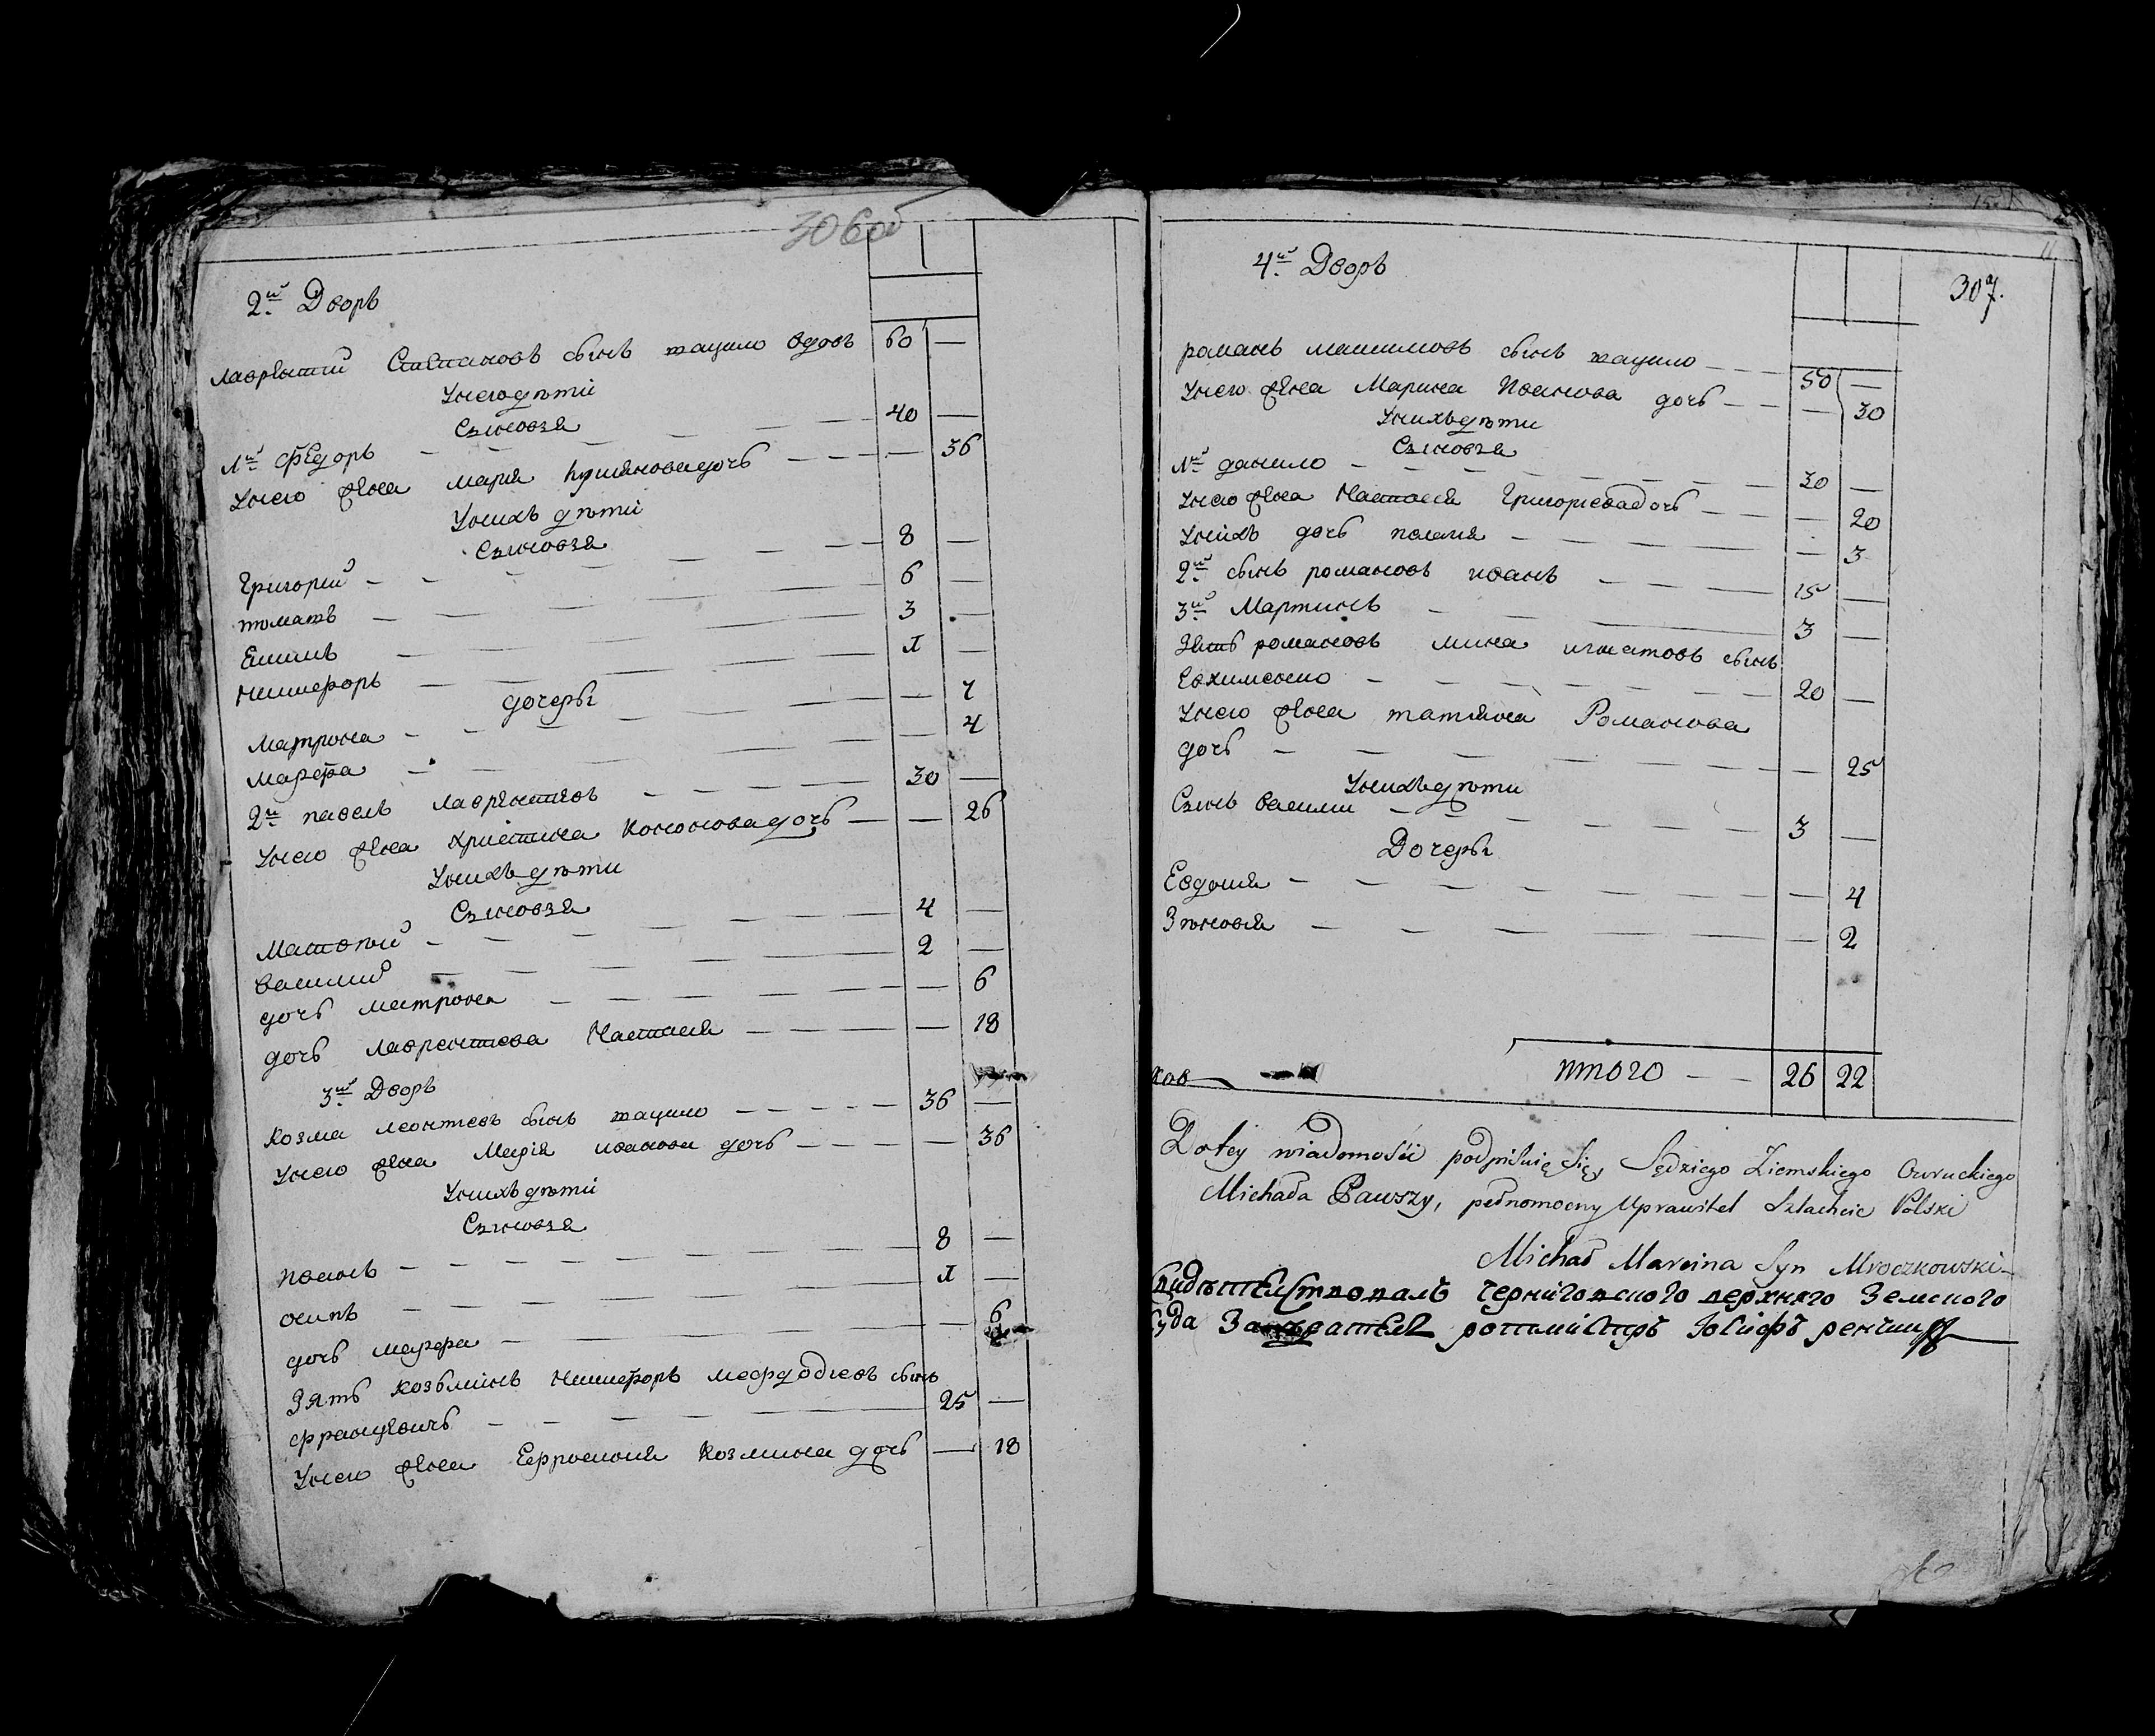 306об
2й Дворъ
Лаврентий Степановъ сынъ Кацило вдовъ 60 —
У него дѣти
Сыновья
1й Федоръ — 40 —
У него жена Мария Кузмянова дочь — 36
У нихъ дѣти
Сыновья
Григорий — 8 —
томашъ — 6 —
Емилъ — 3 —
Никифоръ — 1 —
дочеры
Матрона — 7
Марфа — 4
2й павелъ Лаврентиевъ — 30 —
У него жена Христина Кононова дочь — 26
У нихъ дѣти
Сыновья
Матвѣй — 4 —
Василий — 2 —
дочь матрона — 6
дочь Лаврентиева Настася — 18
3й Дворъ
Козма леонтиевъ сынъ Кацило — 36 —
У него жена Марія иванова дочь — 36
У нихъ дѣти
Сыновья
Иванъ — 8 —
осипъ — 1 —
дочь марфа — 6
Зять козьминъ Никифоръ мефодиевъ сынъ
францевичъ — 25 —
У него жена Ефросиния Козмина дочь — 18
307.
4й Дворъ
романъ максимовъ сынъ кацило — 50 —
У него жена Марина Иванова дочь — 30
У нихъ дѣти
Сыновья
1й данило — 30 —
У него жена Настася Григориева дочь — 20
У нихъ дочь пелагия — 3
2й сынъ романовъ иванъ — 15 —
3й Мартинъ — 3 —
Зять романовъ мина игнатовъ сынъ
Евхименко — 20 —
У него жена татияна Романова
дочь — 25
У нихъ дѣти
Сынъ василий — 3 —
Дочеры
Евдокия — 4
Зѣновия — 2
ков
Итого — 26 22
Do tey wiadomości podpisuię się, Sędziego Ziemskiego Owruckiego
Michała Pawszy, pełnomocny Uprawitel Szlachcic Polski
Michał Marcina Syn Mroczkowski
Свидѣтелствовалъ черниговского верхнего Земского
Суда Заседатель ротмистръ Иосифъ